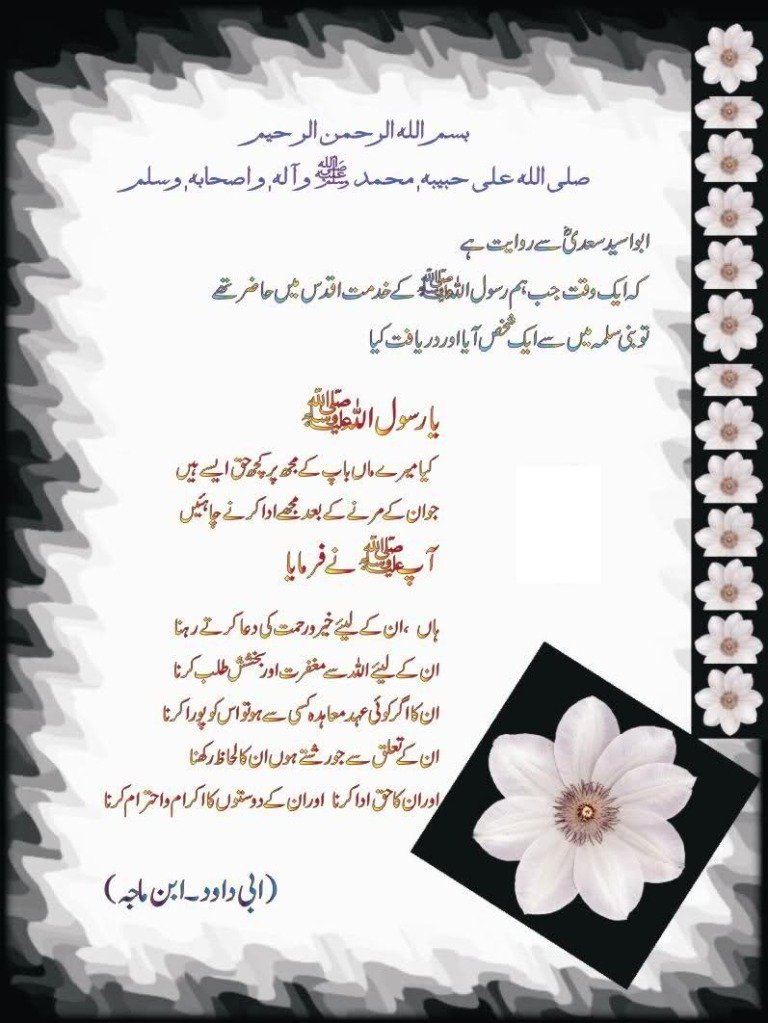 بسم الله الرحمن الرحيم
صلى الله على حبيبه محمد ﷺ وآله واصحابه وسلم
ابواسید سعدیؓ سے روایت ہے
کہ ایک وقت جب ہم رسول اللہﷺ کے خدمت اقدس میں حاضر تھے
تو بنی سلمہ میں سے ایک شخص آیا اور دریافت کیا
یارسول اللہﷺ
کیا میرے ماں باپ کے مجھ پر کچھ حق ایسے ہیں
جو ان کے مرنے کے بعد مجھے ادا کرنے چاہئیں
آپﷺ نے فرمایا
ہاں ،ان کے لیئے خیر و رحمت کی دعا کرتے رہنا
ان کے لیئے اللہ سے مغفرت اور بخشش طلب کرنا
ان کا اگر کوئی عہد معاہدہ کسی سے ہو تو اس کو پورا کرنا
ان کے تعلق سے جو رشتے ہوں ان کا لحاظ رکھنا
اور ان کا حق ادا کرنا اور ان کے دوستوں کا اکرام و احترام کرنا
(ابی داود۔ابن ماجہ)